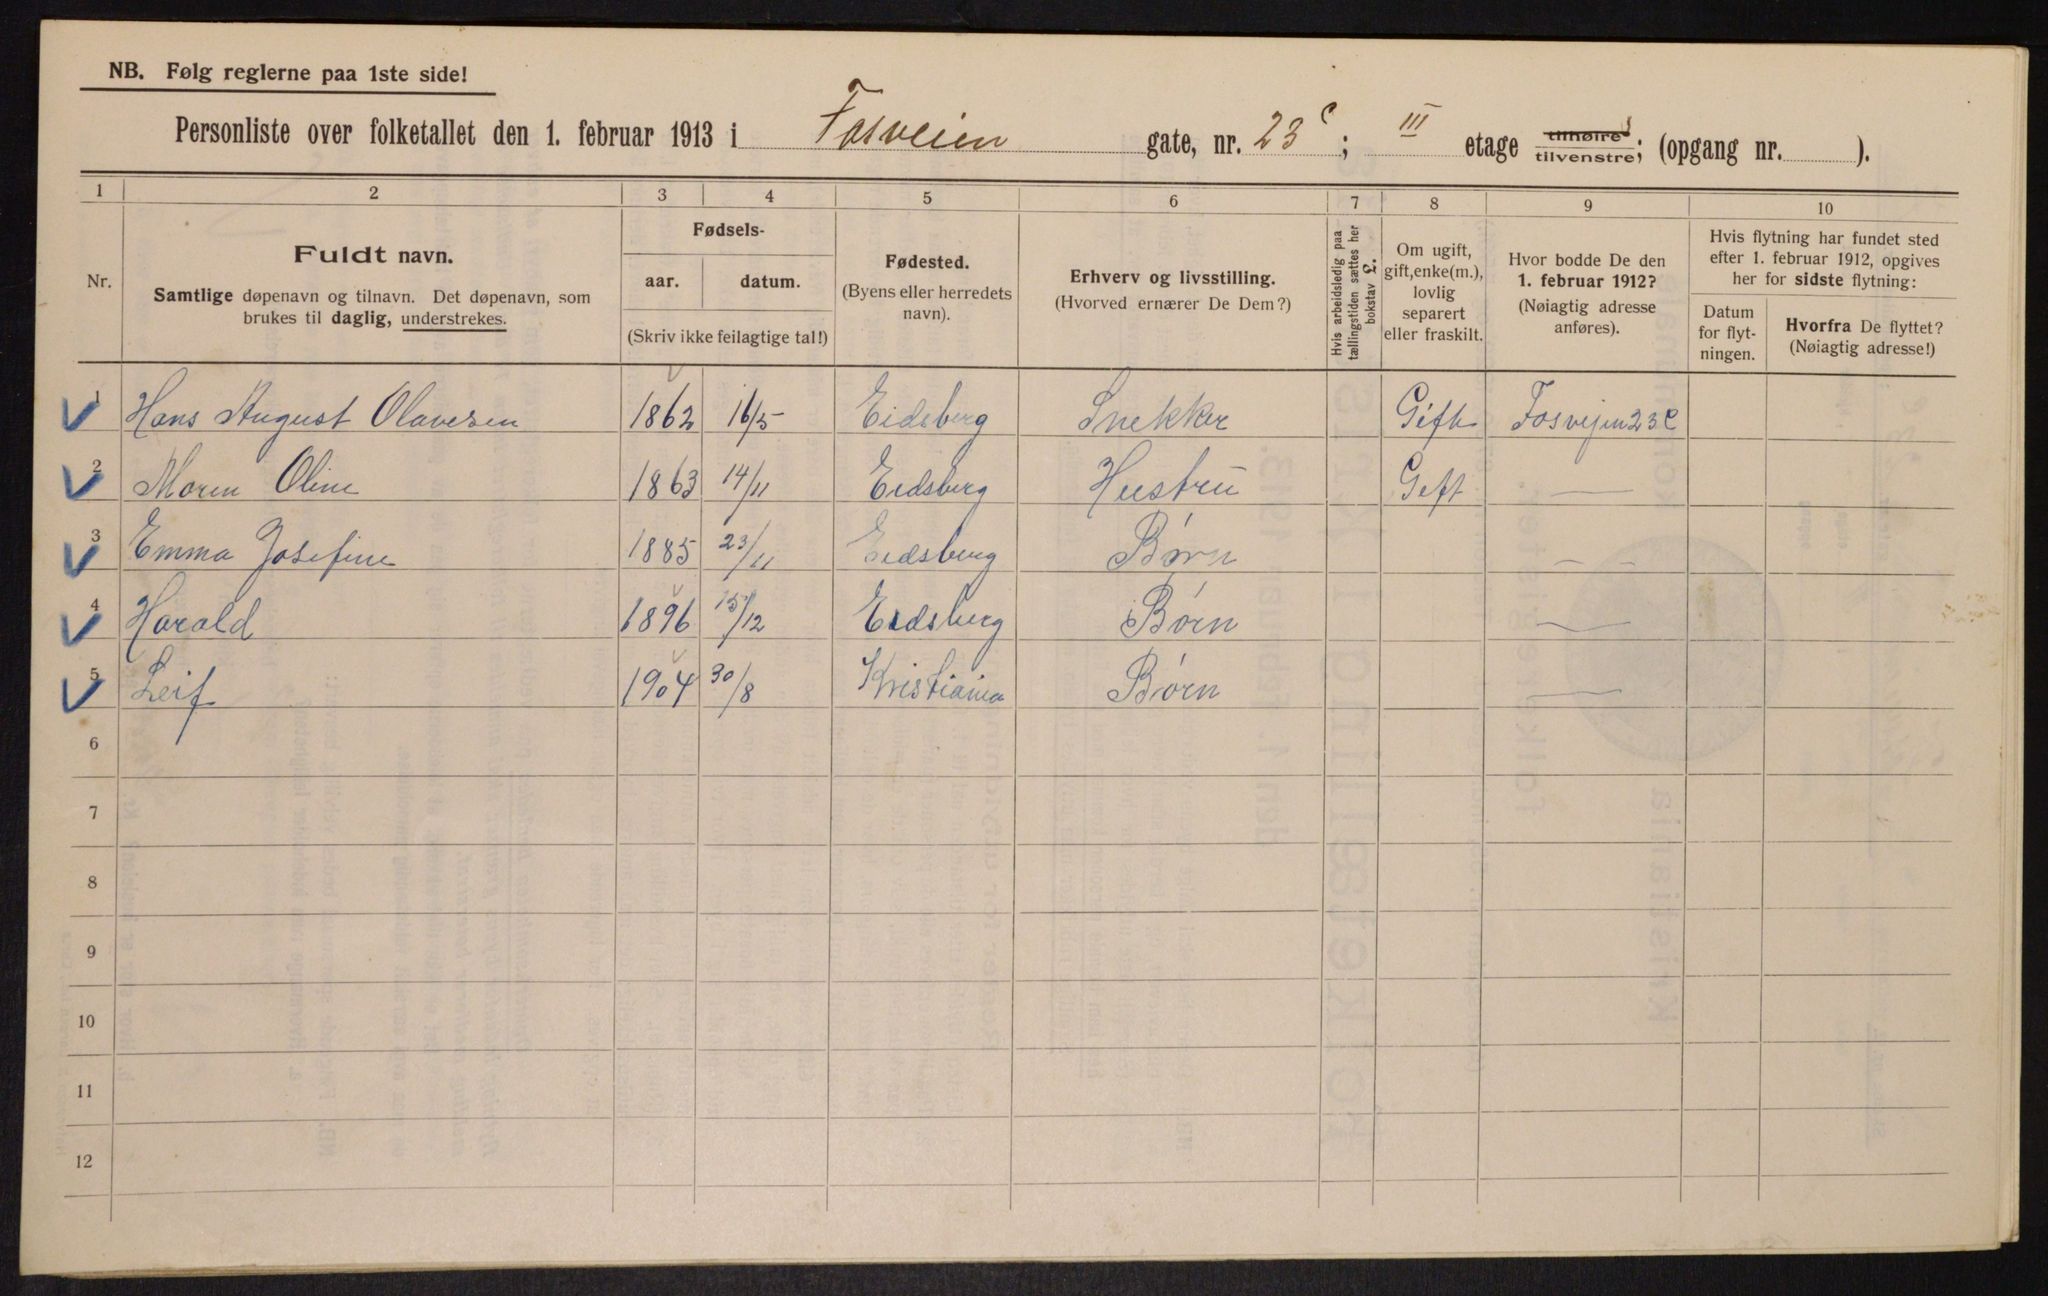 NB. Følg reglerne paa 1ste side!
Personliste over folketallet den 1. februar 1913 i Fosveien gate, nr. 23 c; III etage tilhøire tilvenstre; (opgang nr. ).
1 2 3 4 5 6 7 8 9 10
Nr.
Fuldt navn.
Samtlige døpenavn og tilnavn. Det døpenavn, som
brukes til daglig, understrekes.
Fødsels-
aar. datum.
(Skriv ikke feilagtige tal!)
Fødested.
(Byens eller herredets
navn).
Erhverv og livsstilling.
(Hvorved ernærer De Dem?)
Hvis arbeidsledig paa
tællingstiden sættes her
bokstav £.
Om ugift,
gift, enke(m.),
lovlig
separert
eller fraskilt.
Hvor bodde De den
1. februar 1912?
(Nøiagtig adresse
anføres).
Hvis flytning har fundet sted
efter 1. februar 1912, opgives
her for sidste flytning:
Datum
for flyt-
ningen.
Hvorfra De flyttet?
(Nøiagtig adresse!)
1 Hans August Olavesen 1862 16/5 Eidsberg Snekker Gift Fosvejen 23 C
2 Maren Oline 1863 14/11 Eidsberg Hustru Gift —
3 Emma Josefine 1885 23/11 Eidsberg Børn — —
4 Harald 1896 15/12 Eidsberg Børn —
5 Leif 1904 30/8 Kristiania Børn —
6
7
8
9
10
11
12